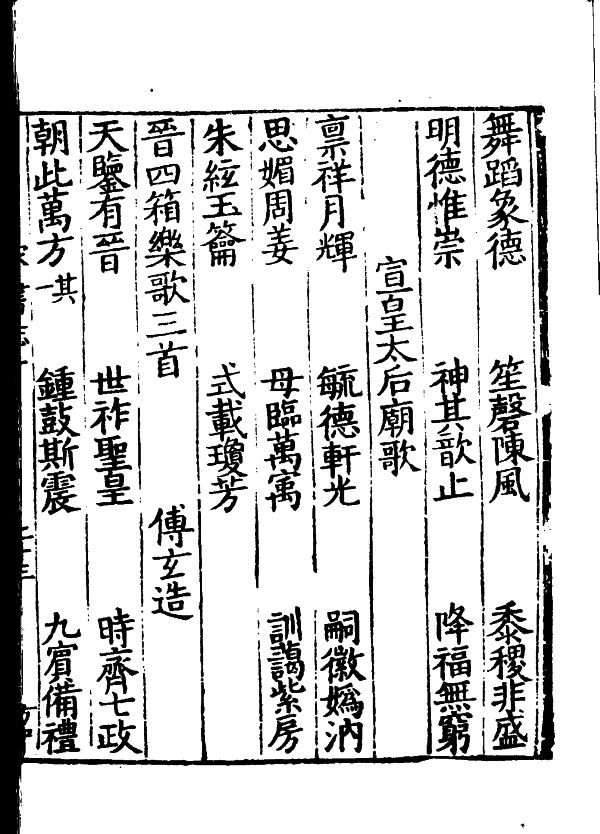 舞蹈象德　笙磬陳風　黍稷非盛
明德惟崇　神其歆止　降福無窮
宣皇太后廟歌
禀祥月輝　毓德軒光　嗣徽嬀汭
思媚周姜　母臨萬㝢　訓藹紫房
朱絃玉籥　式載瓊芳
晉四箱樂歌三首　傅玄造
天鑒有晉　世祚聖皇　時齊七政
朝此萬方其一　鍾鼓斯震　九賓備禮